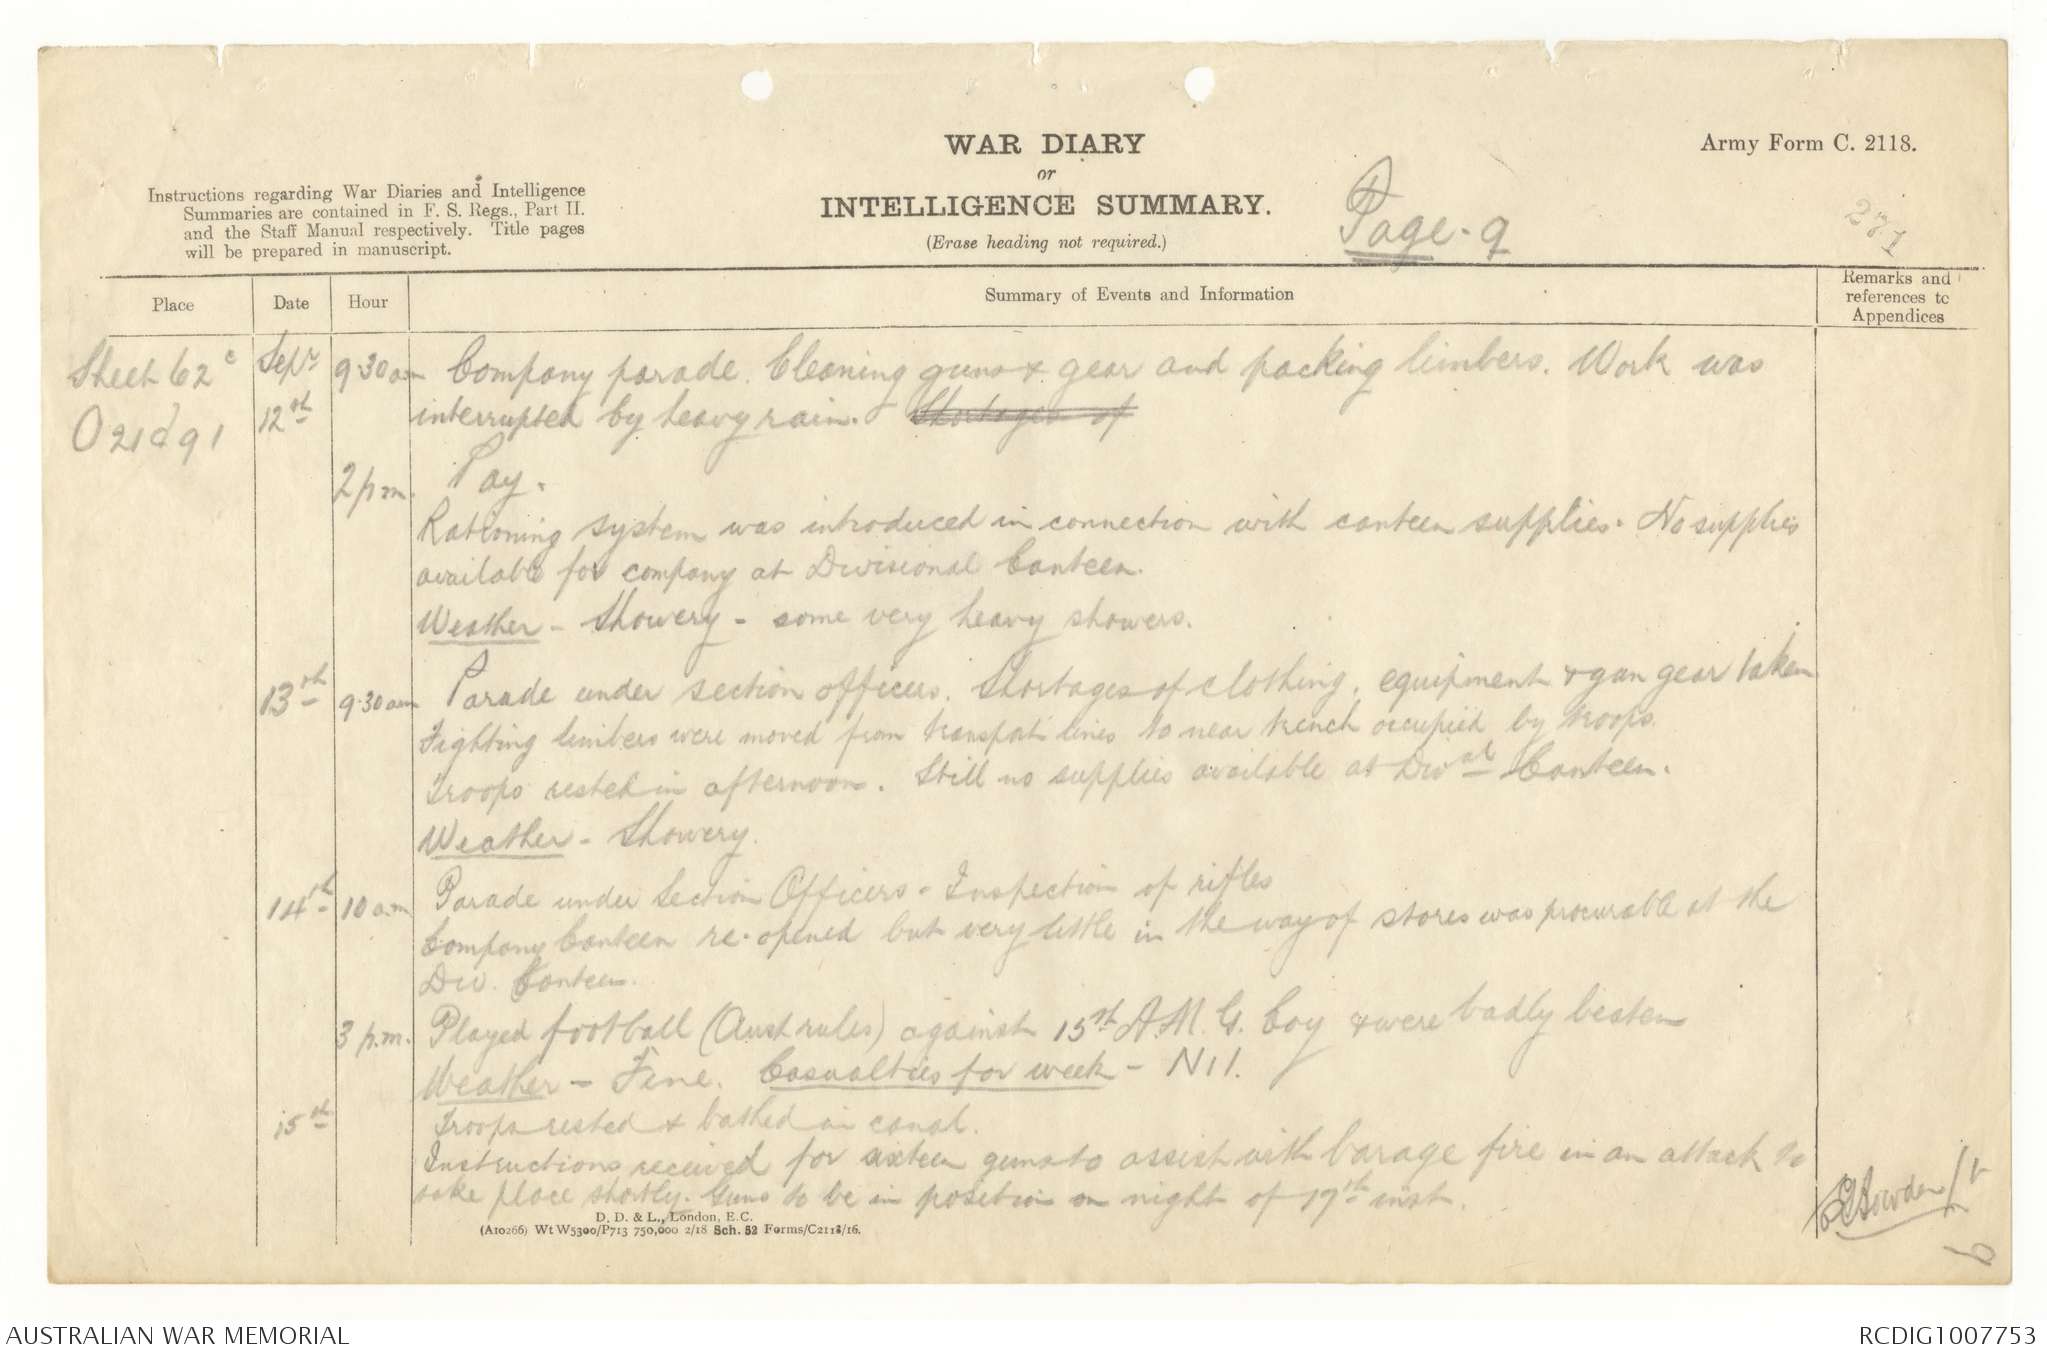 WAR DIARY
or
INTELLIGENCE SUMMARY.
(Erase heading not required.)
Army Form C. 2118.
Instructions regarding War Diaries and Intelligence
Summaries are contained in F. S. Regs., Part II.
and the Staff Manual respectively. Title pages
will be prepared in manuscript.
Page. 9
271
Place Date Hour Summary of Events and Information Remarks and references to Appendices
Sheet 62c Sepr 9.30am Company parade. Cleaning guns & gear and packing limbers. Work was
O21d91 12th interrupted by heavy rain. Shortages of
2 p.m. Pay.
Rationing system was introduced in connection with canteen supplies. No supplies
available for company at Divisional Canteen.
Weather - Showery - some very heavy showers.
13th 9.30am Parade under section officers. Shortages of clothing, equipment & gun gear taken
Fighting limbers were moved from transport lines to near trench occupied by troops.
Troops rested in afternoon. Still no supplies available at Dival Canteen.
Weather - Showery.
14th 10 a.m Parade under Section Officers - Inspection of rifles
Company Canteen re-opened but very little in the way of stores was procurable at the
Div. Canteen.
3 p.m. Played football (Aust rules) against 15th A.M.G. Coy & were badly beaten
Weather - Fine. Casualties for week - Nil.
15th Troops rested & bathed in canal.
Instructions received for sixteen guns to assist with barage fire in an attack to
take place shortly. Guns to be in position on night of 17th inst.
D. D. & L., London, E.C.
(A10266) Wt W5300/P713 750,000 2/18 Sch. 52 Forms/C2118/16.
AUSTRALIAN WAR MEMORIAL
RCDIG1007753